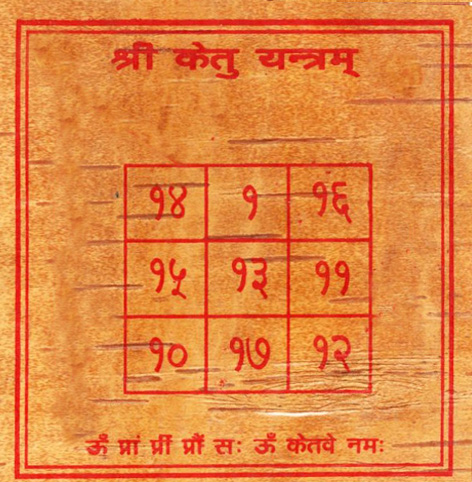 श्री केतु यन्त्रम्
१४ १ १६
१५ १३ ११
१० १७ १२
ऊँ प्रां प्रीं प्रौं सः ऊँ केतवे नमः